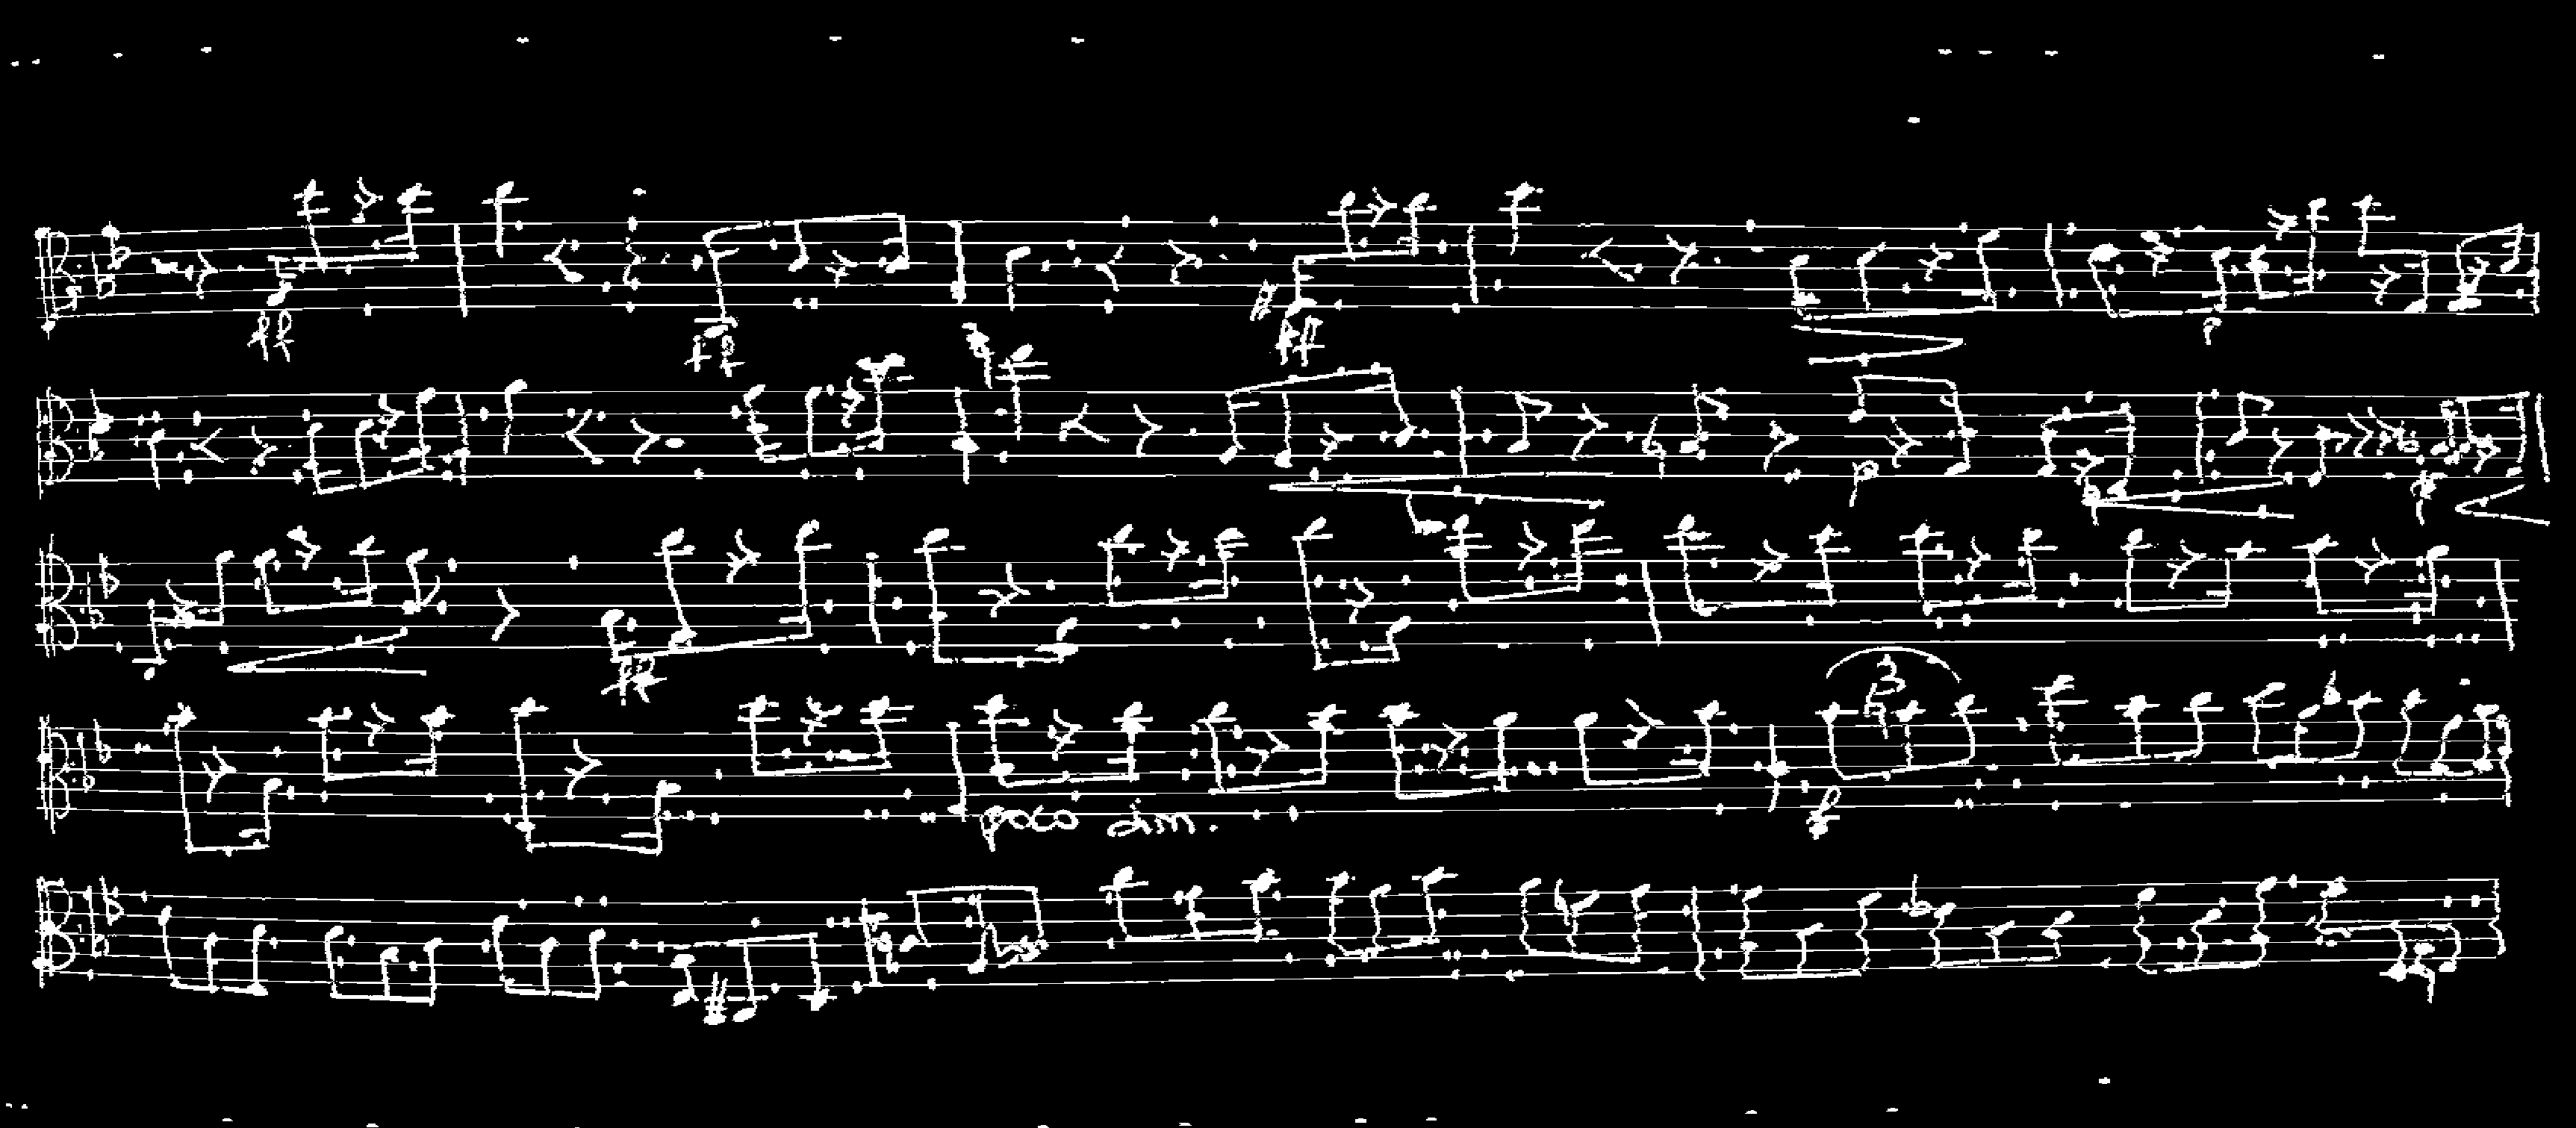 ff ff ff p
p p p
ff
3
poco dim. f